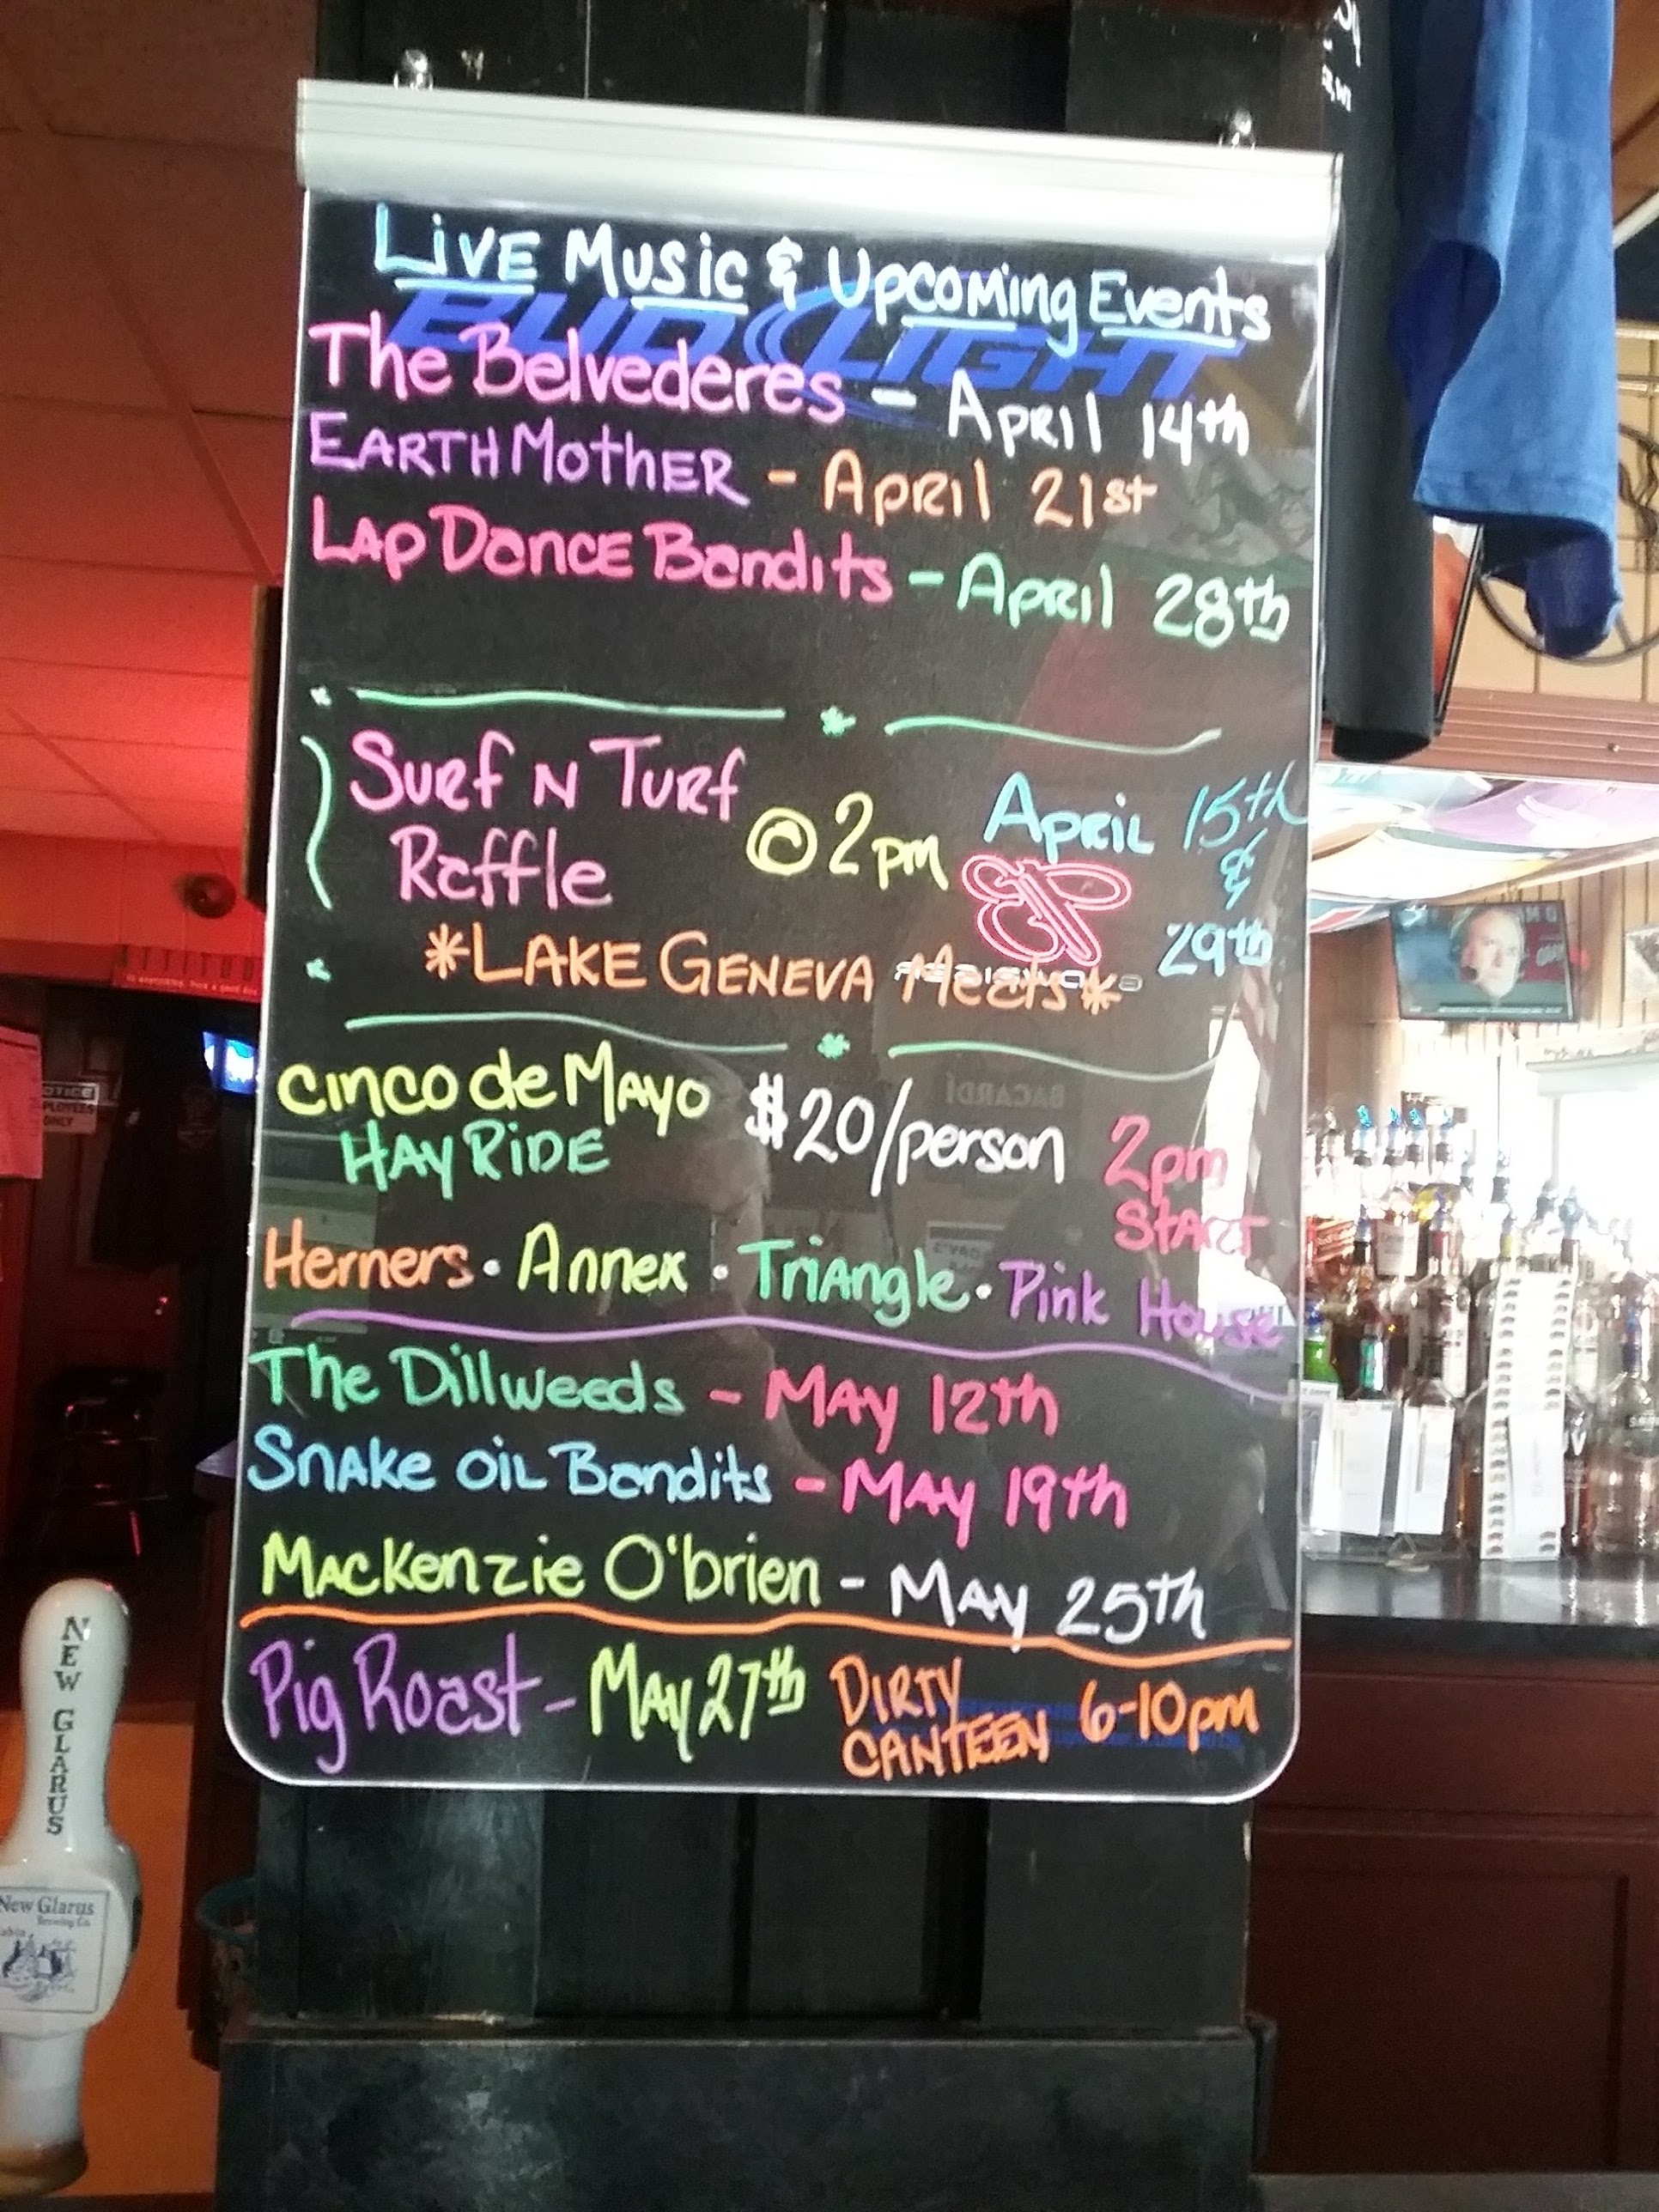 Live Music & Upcoming Events
BUD LIGHT
The Belvederes - April 14th
EARTH MOTHER - April 21st
Lap Dance Bandits - April 28th
Surf N Turf
Raffle
@ 2pm
April 15th
&
29th
*LAKE GENEVA Meats*
Cinco de Mayo
HAY RIDE
$20/person
2pm
START
Herners · Annex · Triangle · Pink House
The Dillweeds - MAY 12th
Snake oil Bandits - MAY 19th
Mackenzie O'brien - MAY 25th
Pig Roast - MAY 27th
DIRTY
CANTEEN
6-10pm
BACARDÍ
NOTICE
EMPLOYEES
ONLY
NEW GLARUS
New Glarus
Brewing Co.